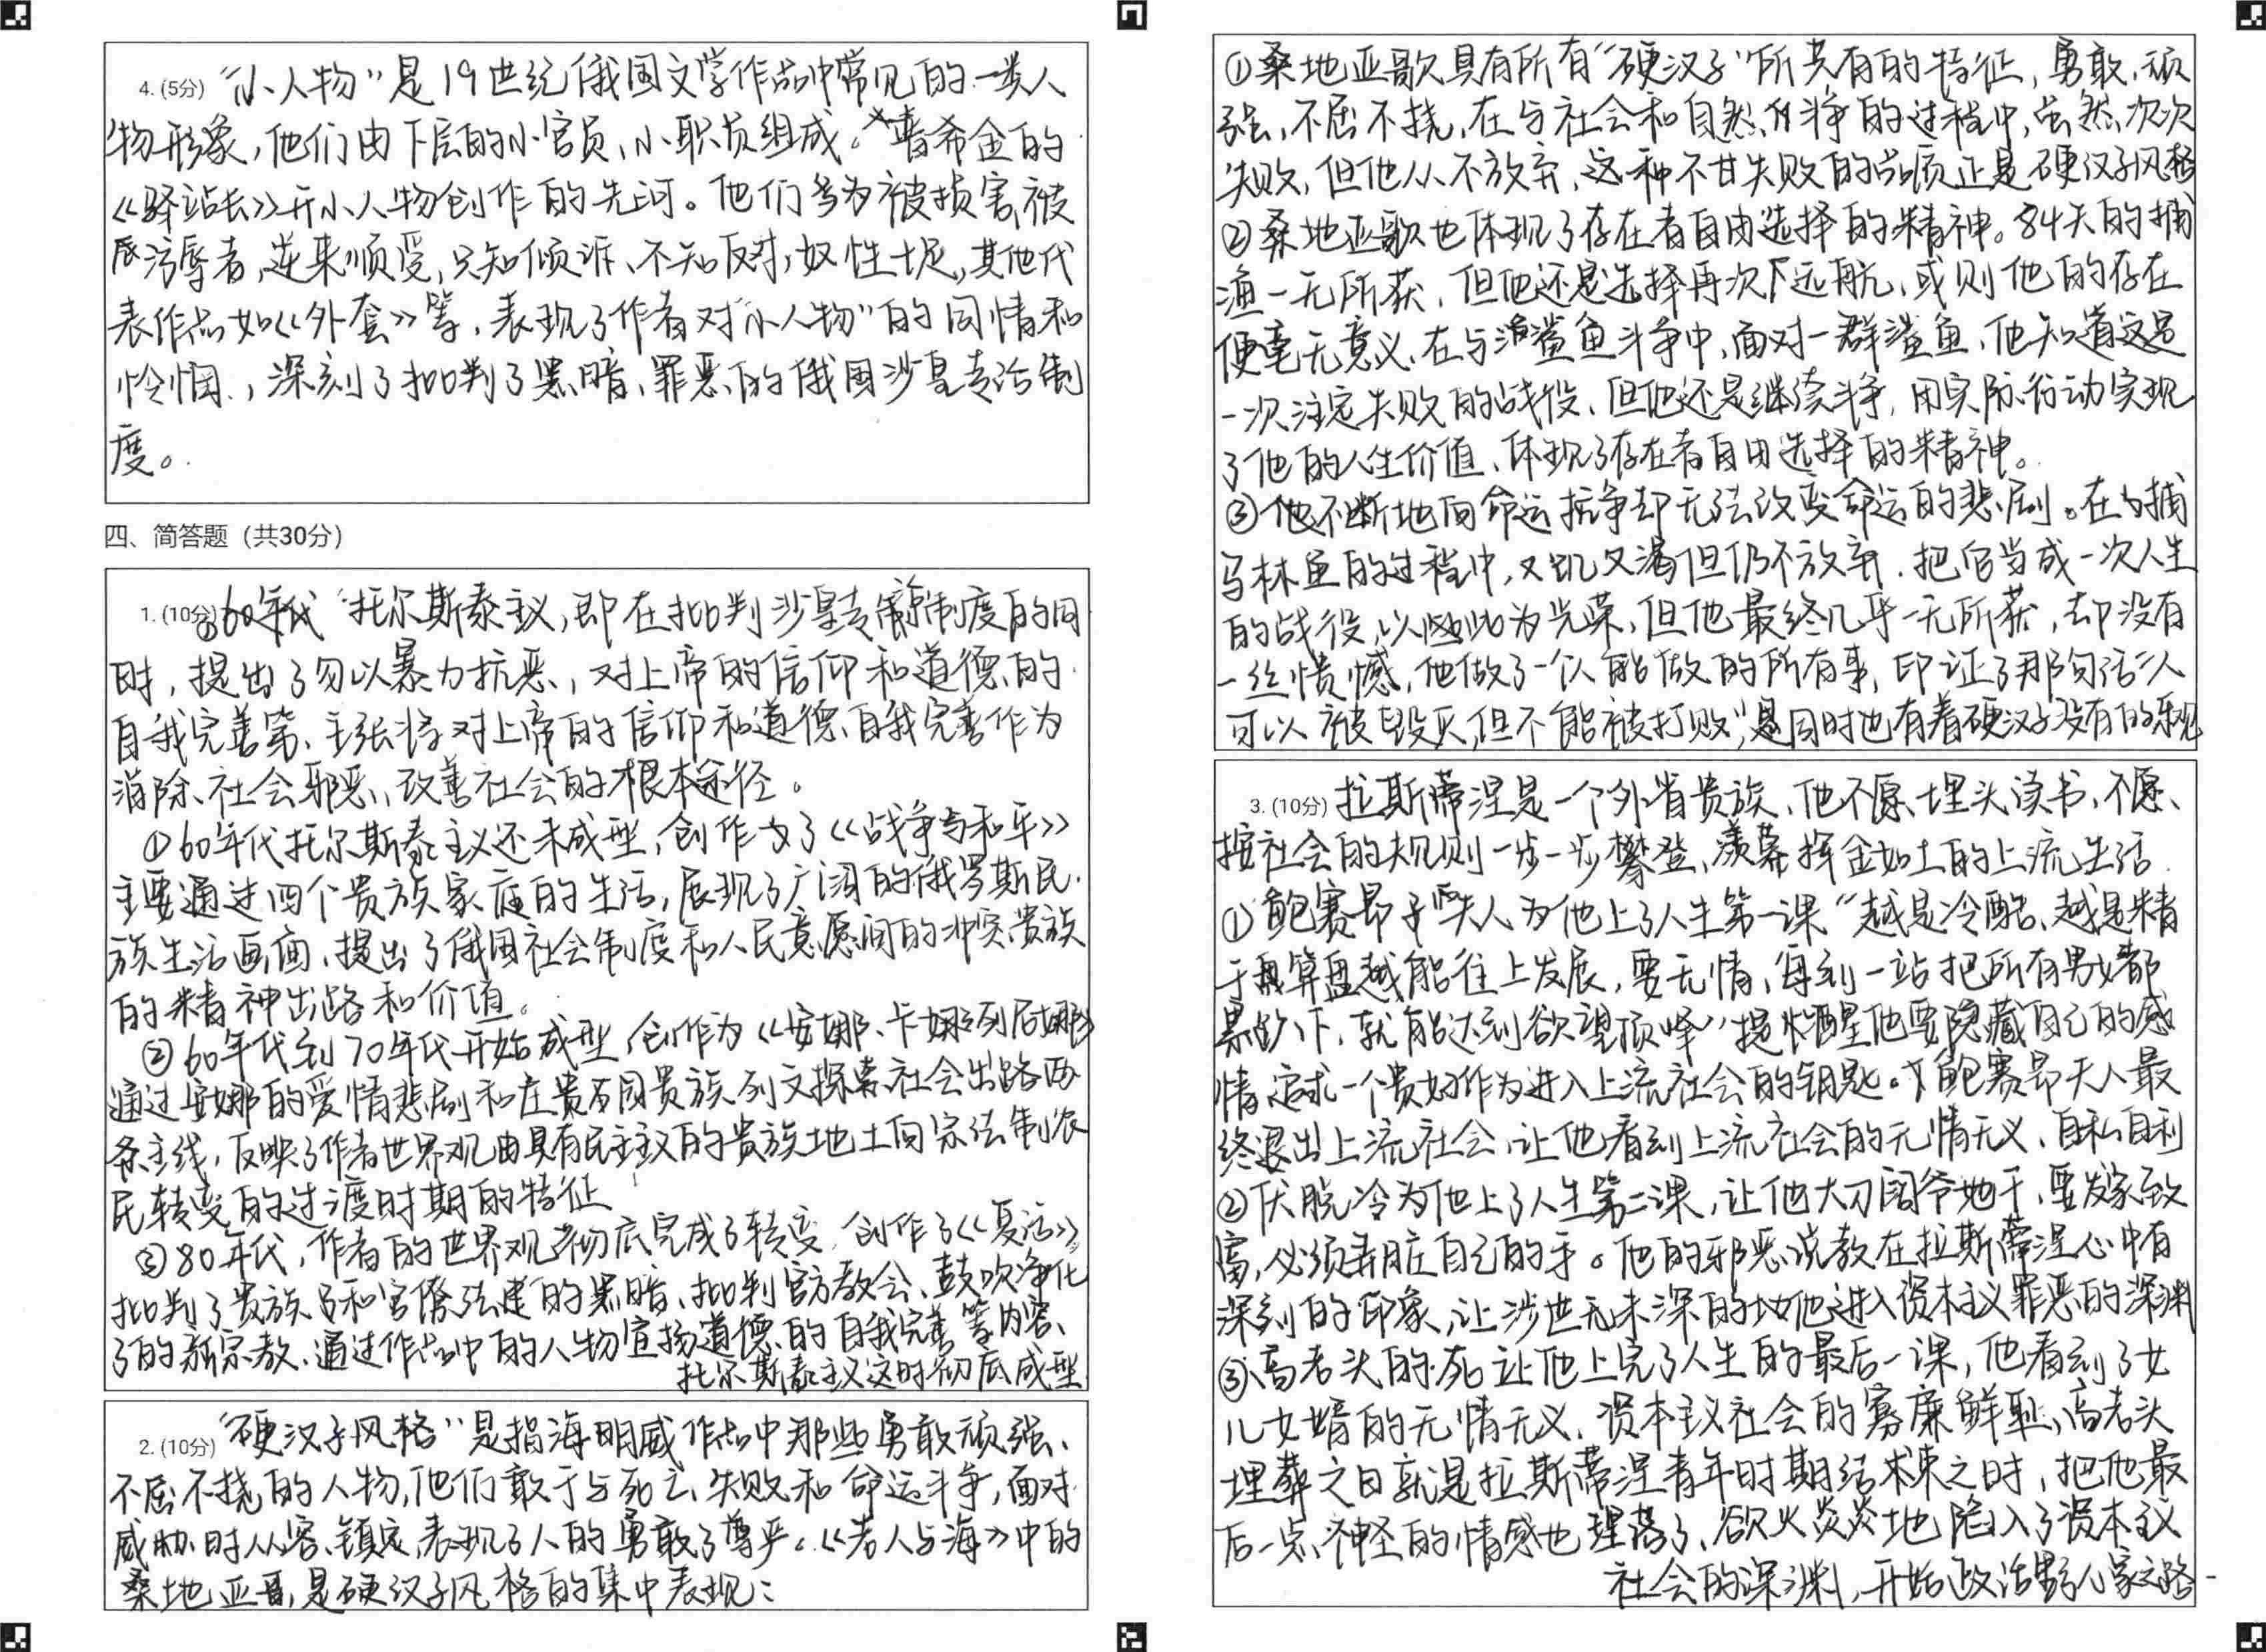 4. (5分) “小人物”是19世纪俄国文学作品中常见的一类人
物形象，他们由下层的小官员、小职员组成。普希金的
《驿站长》开小人物创作的先河。他们多为被损害、被
污辱者，逆来顺受，只知倾诉、不知反对，奴性十足，其他代
表作品如《外套》等，表现了作者对“小人物”的同情和
怜悯，深刻了批判了黑暗、罪恶的俄国沙皇专治制
度。
四、简答题（共30分）
1. (10分) 托尔斯泰主义，即在批判沙皇专制制度的同
时，提出了勿以暴力抗恶，对上帝的信仰和道德的
自我完善等、主张将对上帝的信仰和道德自我完善作为
消除社会邪恶、改善社会的根本途径。
①60年代托尔斯泰主义还未成型，创作为了《战争与和平》
主要通过四个贵族家庭的生活，展现了广阔的俄罗斯民
族生活画面、提出了俄国社会制度和人民意愿间的冲突、贵族
的精神出路和价值。
②60年代到70年代开始成型，创作为《安娜、卡娜列尼娜》
通过安娜的爱情悲剧和庄贵族列文探索社会出路两
条主线，反映了作者世界观由具有民主主义的贵族地主向宗法制农
民转变的过渡时期的特征
③80年代，作者的世界观彻底完成了转变，创作了《复活》
批判了贵族和官僚法律的黑暗、批判官方教会、鼓吹净化
了的新宗教、通过作品中的人物宣扬道德的自我完善等内容、
托尔斯泰主义这时彻底成型
2. (10分) “硬汉子风格”是指海明威作品中那些勇敢顽强、
不屈不挠的人物，他们敢于与死亡、失败和命运斗争，面对
威胁时从容、镇定，表现了人的勇敢了尊严。《老人与海》中的
桑地亚哥，是硬汉子风格的集中表现：
①桑地亚歌具有所有“硬汉子”所共有的特征，勇敢，顽
强、不屈不挠，在与社会和自然斗争的过程中，虽然次次
失败，但他从不放弃，这种不甘失败的品质正是硬汉子风格
②桑地亚歌也体现了存在者自由选择的精神。84天的捕
渔一无所获，但他还是选择再次下远航，或则他的存在
便毫无意义，在与鲨鱼斗争中，面对一群鲨鱼，他知道这是
一次注定失败的战役，但他还是继续斗争，用实际行动实现
了他的人生价值、体现了存在者自由选择的精神。
③他不断地向命运抗争却无法改变命运的悲剧。在与捕
马林鱼的过程中，又饥又渴但仍不放弃，把它当成一次人生
的战役，以此为光荣，但他最终几乎一无所获，却没有
一丝愤憾，他做了一个人能做的所有事，印证了那句话“人
可以被毁灭，但不能被打败”，同时也有着硬汉子没有的乐观
3. (10分) 拉斯蒂涅是一个外省贵族，他不愿埋头读书，不愿
按社会的规则一步一步攀登，羡慕挥金如土的上流生活
①鲍赛昂子爵夫人为他上了人生第一课“越是冷酷、越是精
于算盘越能往上发展，要无情，每到一站把所有男女都
累趴下，就能达到欲望顶峰”提醒他要隐藏自己的感
情，追求一个贵妇作为进入上流社会的钥匙。鲍赛昂夫人最
终退出上流社会，让他看到上流社会的无情无义、自私自利
②伏脱冷为他上了人生第二课，让他大刀阔斧地干，要发家致
富，必须弄脏自己的手。他的邪恶说教在拉斯蒂涅心中有
深刻的印象，让涉世未深的他进入资本主义罪恶的深渊
③高老头的死让他上完了人生的最后一课，他看到了女
儿女婿的无情无义、资本主义社会的寡廉鲜耻，高老头
埋葬之日就是拉斯蒂涅青年时期结束之时，把他最
后一点神圣的情感也埋葬了，欲火炎炎地陷入了资本主义
社会的深渊，开始政治野心家之路